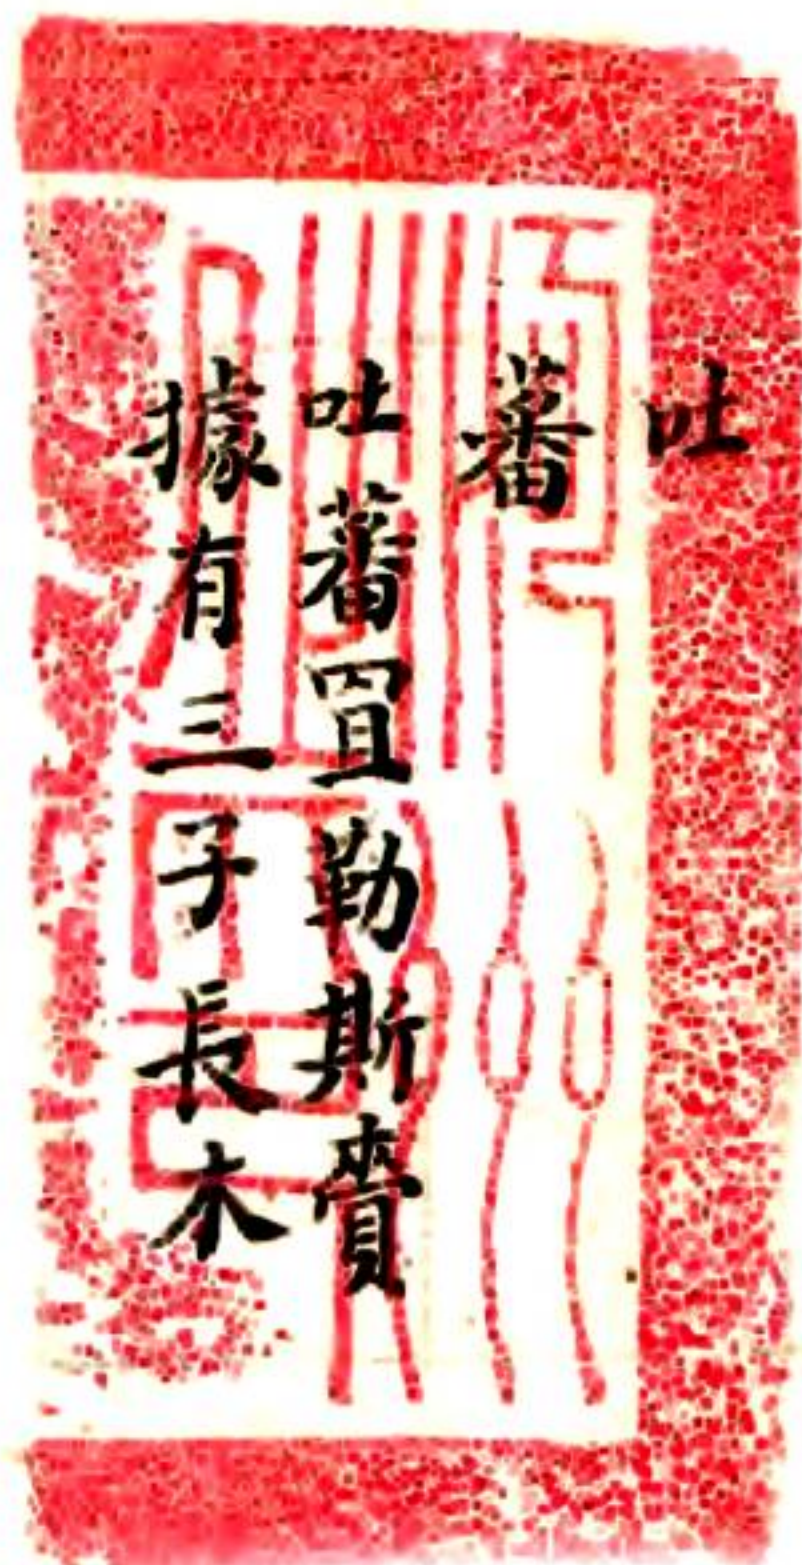 吐
蕃
吐蕃罝勒斯賫
據有三子長木